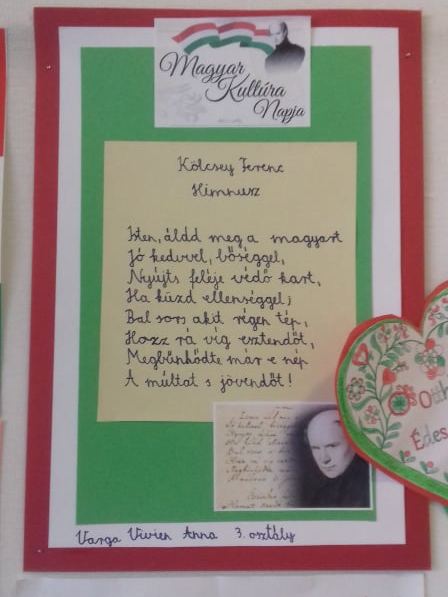 Magyar
Kultúra
Napja
Kölcsey Ferenc
Himnusz
Isten, áldd meg a magyart
Jó kedvvel, bőséggel,
Nyújts feléje védő kart,
Ha küzd ellenséggel;
Bal sors akit régen tép,
Hozz rá víg esztendőt,
Megbűnhődte már e nép
A múltat s jövendőt!
Varga Vivien Anna 3. osztály
Édes